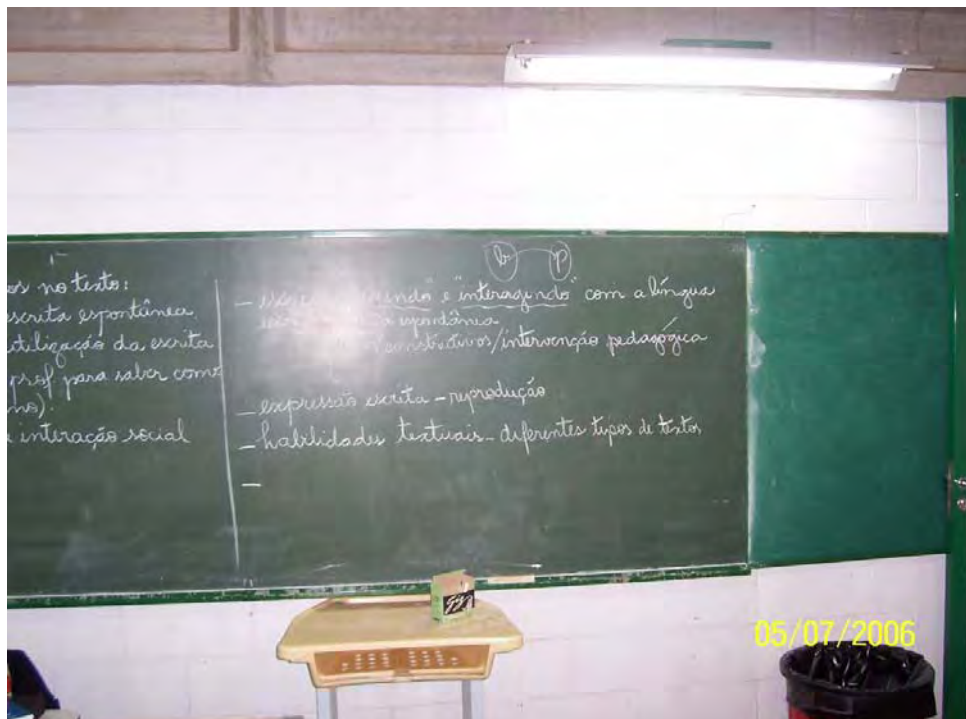 os no texto:
escrita espontânea
utilização da escrita
prof para saber como
mo).
e interação social
b p
— "endo" e "interagindo" com a língua
espontânea
construtivos/intervenção pedagógica
— expressão escrita – reprodução
— habilidades textuais – diferentes tipos de textos
—
05/07/2006